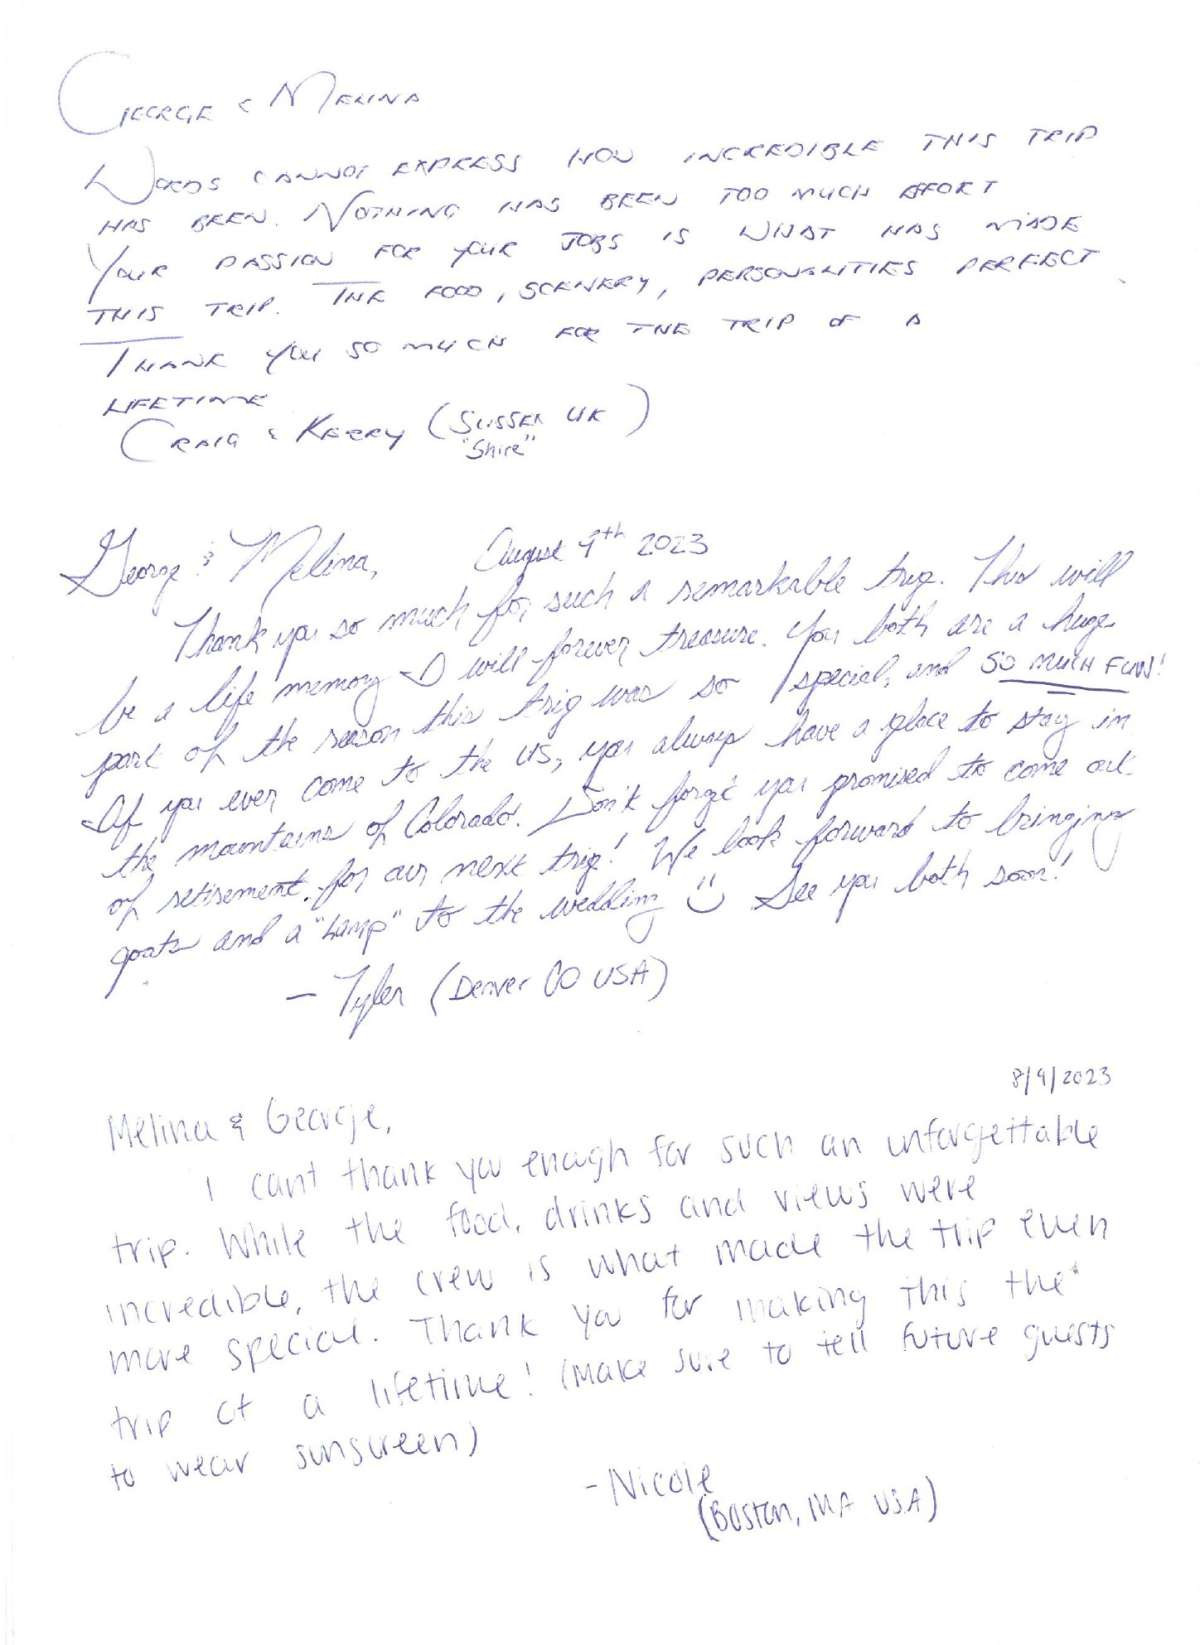 GEORGE & MELINA
WORDS CANNOT EXPRESS HOW INCREDIBLE THIS TRIP
HAS BEEN. NOTHING HAS BEEN TOO MUCH EFORT
YOUR PASSION FOR YOUR JOBS IS WHAT HAS MADE
THIS TRIP. THE FOOD, SCENERY, PERSONALITIES PERFECT
THANK YOU SO MUCH FOR THE TRIP OF A
LIFETIME
CRAIG & KERRY (SUSSEX UK)
"Shire"
George & Melina, August 9th 2023
Thank you so much for such a remarkable trip. This will
be a life memory I will forever treasure. You both are a huge
part of the reason this trip was so special, and SO MUCH FUN!
If you ever come to the US, you always have a place to stay in
the mountains of Colorado. Don't forget you promised to come out
of retirement for our next trip! We look forward to bringing
goats and a "Lamp" to the wedding :) See you both soon!
- Tyler (Denver CO USA)
8/9/2023
Melina & George,
I cant thank you enough for such an unforgettable
trip. While the food, drinks and views were
incredible, the crew is what made the trip even
more special. Thank you for making this the
trip of a lifetime! (Make sure to tell future guests
to wear sunscreen)
- Nicole
(Boston, MA USA)